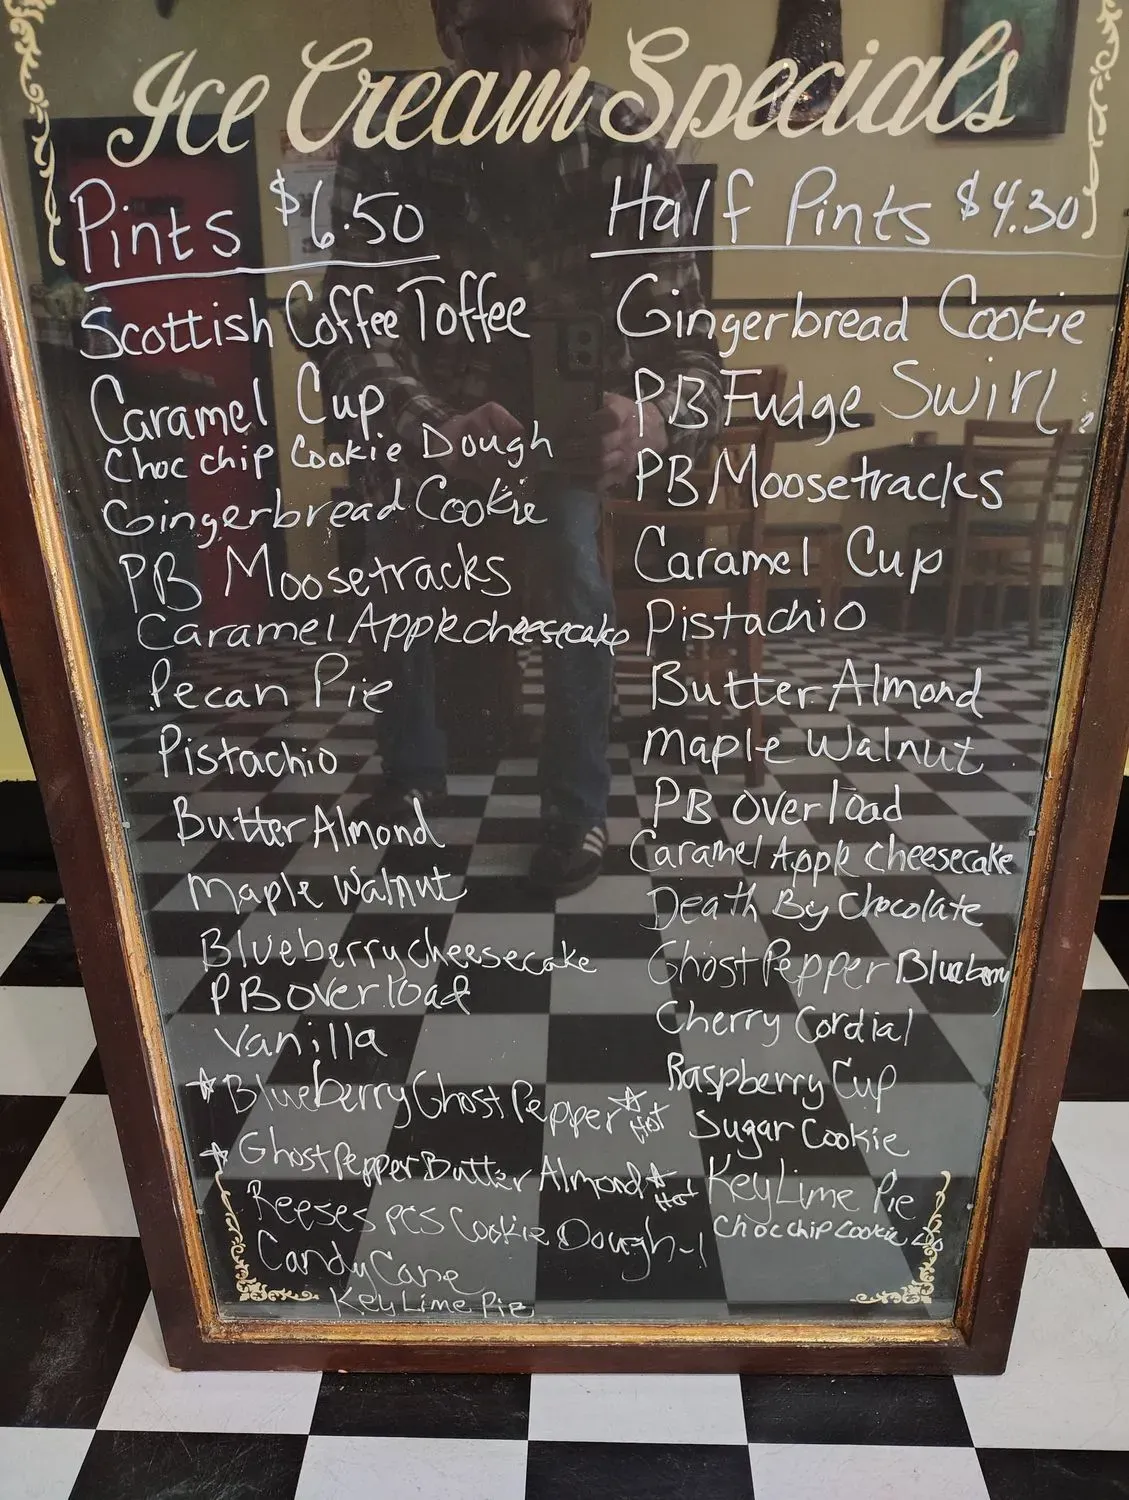 Ice Cream Specials
Pints $6.50
Scottish Coffee Toffee
Caramel Cup
Choc chip Cookie Dough
Gingerbread Cookie
PB Moosetracks
Caramel Apple cheesecake
Pecan Pie
Pistachio
Butter Almond
Maple Walnut
Blueberry cheesecake
PB overload
Vanilla
Blueberry Ghost Pepper Hot
Ghost Pepper Butter Almond Hot
Reeses pcs Cookie Dough-1
Candy Cane
Key Lime Pie
Half Pints $4.30
Gingerbread Cookie
PB Fudge Swirl
PB Moosetracks
Caramel Cup
Pistachio
Butter Almond
Maple Walnut
PB overload
Caramel Apple cheesecake
Death By Chocolate
Ghost Pepper Blueberry
Cherry Cordial
Raspberry Cup
Sugar Cookie
Key Lime Pie
Choc chip Cookie